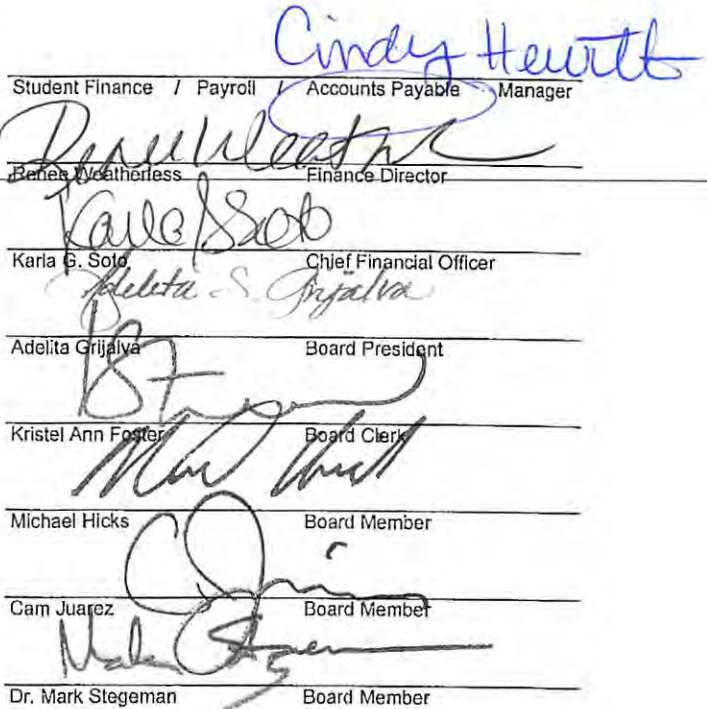 Cindy Hewitt
Student Finance / Payroll / Accounts Payable Manager
Renee Weatherless Finance Director
Karla G. Soto
Karla G. Soto Chief Financial Officer
Adelita S. Grijalva
Adelita Grijalva Board President
Kristel Ann Foster Board Clerk
Michael Hicks Board Member
Cam Juarez Board Member
Dr. Mark Stegeman Board Member